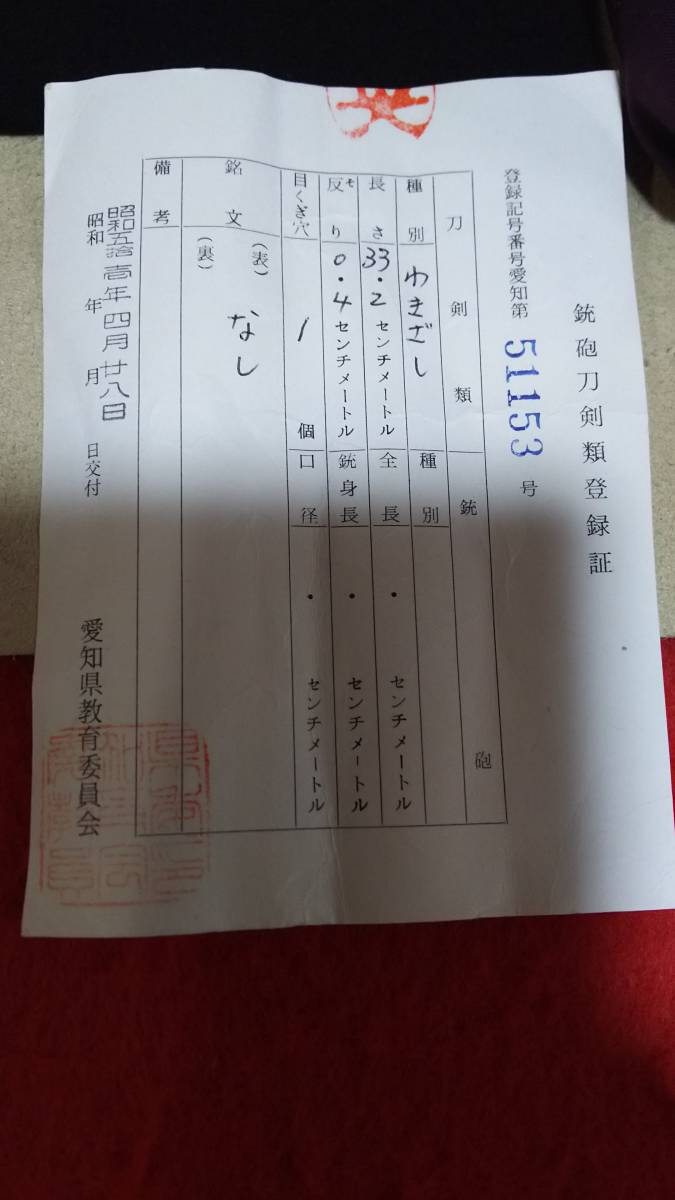 銃砲刀剣類登録証
登録記号番号愛知第 51153 号
刀剣類 銃砲
種別 わきざし 種別
長さ 33.2 センチメートル 全長 ・ センチメートル
反り モ 0.4 センチメートル 銃身長 ・ センチメートル
目くぎ穴 1 個 口径 ・ センチメートル
銘文 (表) なし
(裏)
備考
昭和五拾壱年四月廿八日
昭和 年 月 日交付
愛知県教育委員会